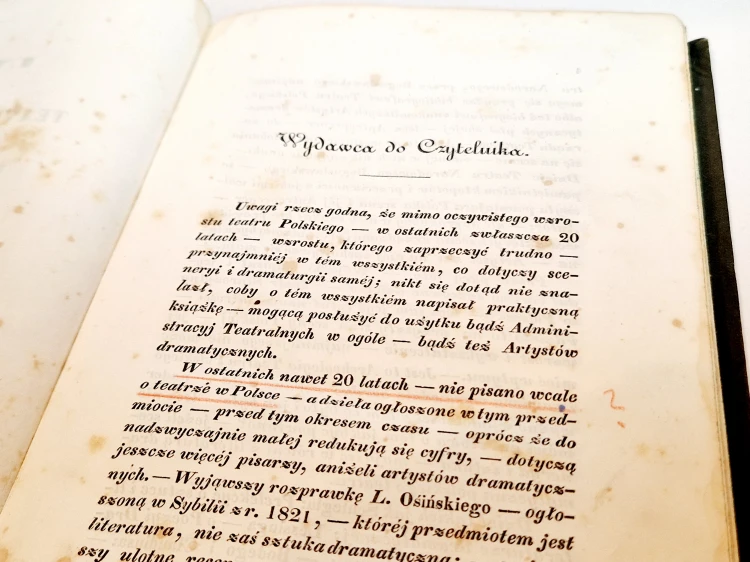 Wydawca do Czytelnika.
Uwagi rzecz godna, że mimo oczywistego wzro-
stu teatru Polskiego — w ostatnich zwłaszcza 20
latach — wzrostu, którego zaprzeczyć trudno —
przynajmniéj w tém wszystkiém, co dotyczy sce-
neryi i dramaturgii saméj; nikt się dotąd nie zna-
lazł, coby o tém wszystkiém napisał praktyczną
książkę — mogącą posłużyć do użytku bądź Admini-
stracyj Teatralnych w ogóle — bądź też Artystów
dramatycznych.
W ostatnich nawet 20 latach — nie pisano wcale
o teatrze w Polsce — a dzieła ogłoszone w tym przed-
miocie — przed tym okresem czasu — oprócz że do
nadzwyczajnie małej redukują się cyfry, — dotyczą
jeszcze więcéj pisarzy, aniżeli artystów dramatycz-
nych. — Wyjąwszy rozprawkę L. Osińskiego — ogło-
szoną w Sybilii z r. 1821, — któréj przedmiotem jest
literatura, nie zaś sztuka dramatyczna;
szy ulotne